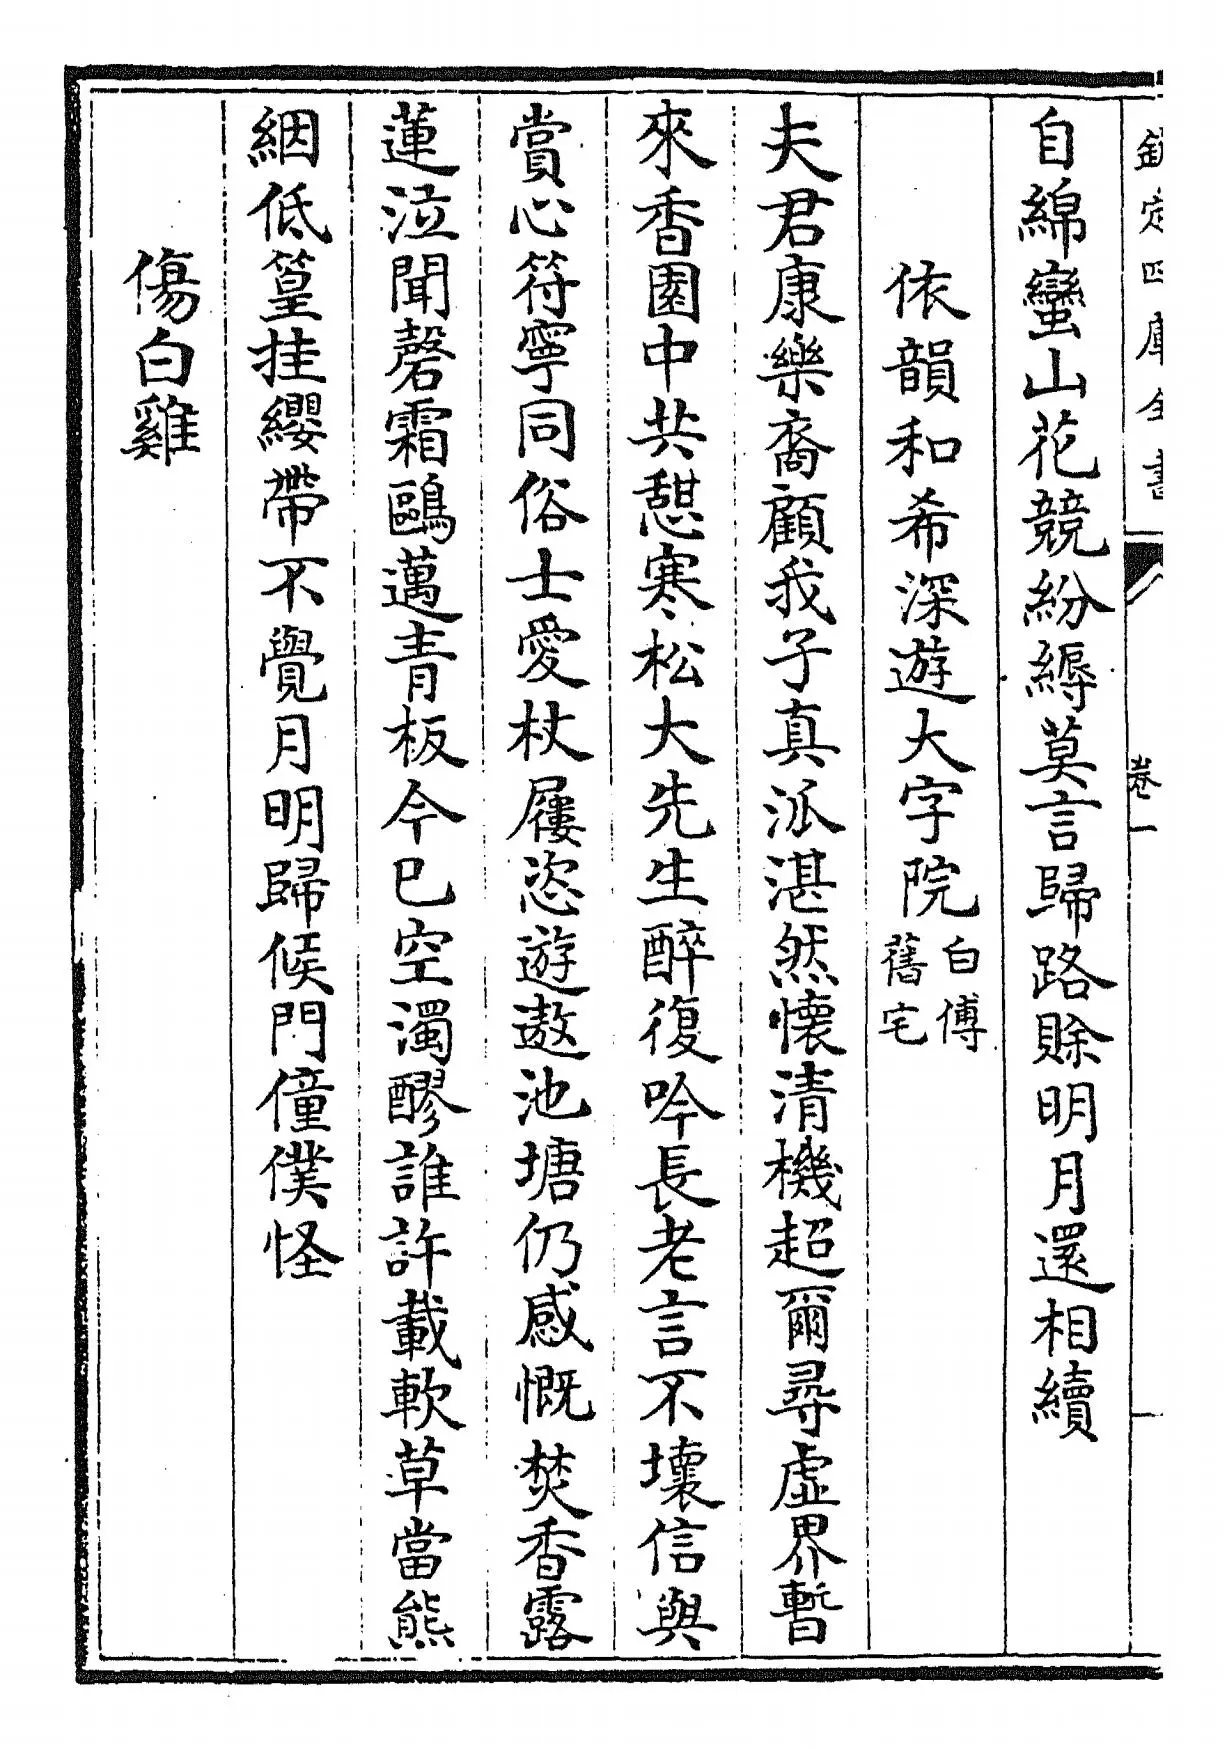 欽定四庫全書
卷一
自綿蠻山花競紛縟莫言歸路賒明月還相續
依韻和希深遊大字院白傅舊宅
夫君康樂裔顧我子真派湛然懷清機超爾尋虛界暫
來香園中共憇寒松大先生醉復吟長老言不壞信與
賞心符寧同俗士愛杖屨恣遊遨池塘仍感慨焚香露
蓮泣聞磬霜鷗邁青板今已空濁醪誰許載軟草當熊
絪低篁挂纓帶不覺月明歸候門僮僕怪
傷白雞